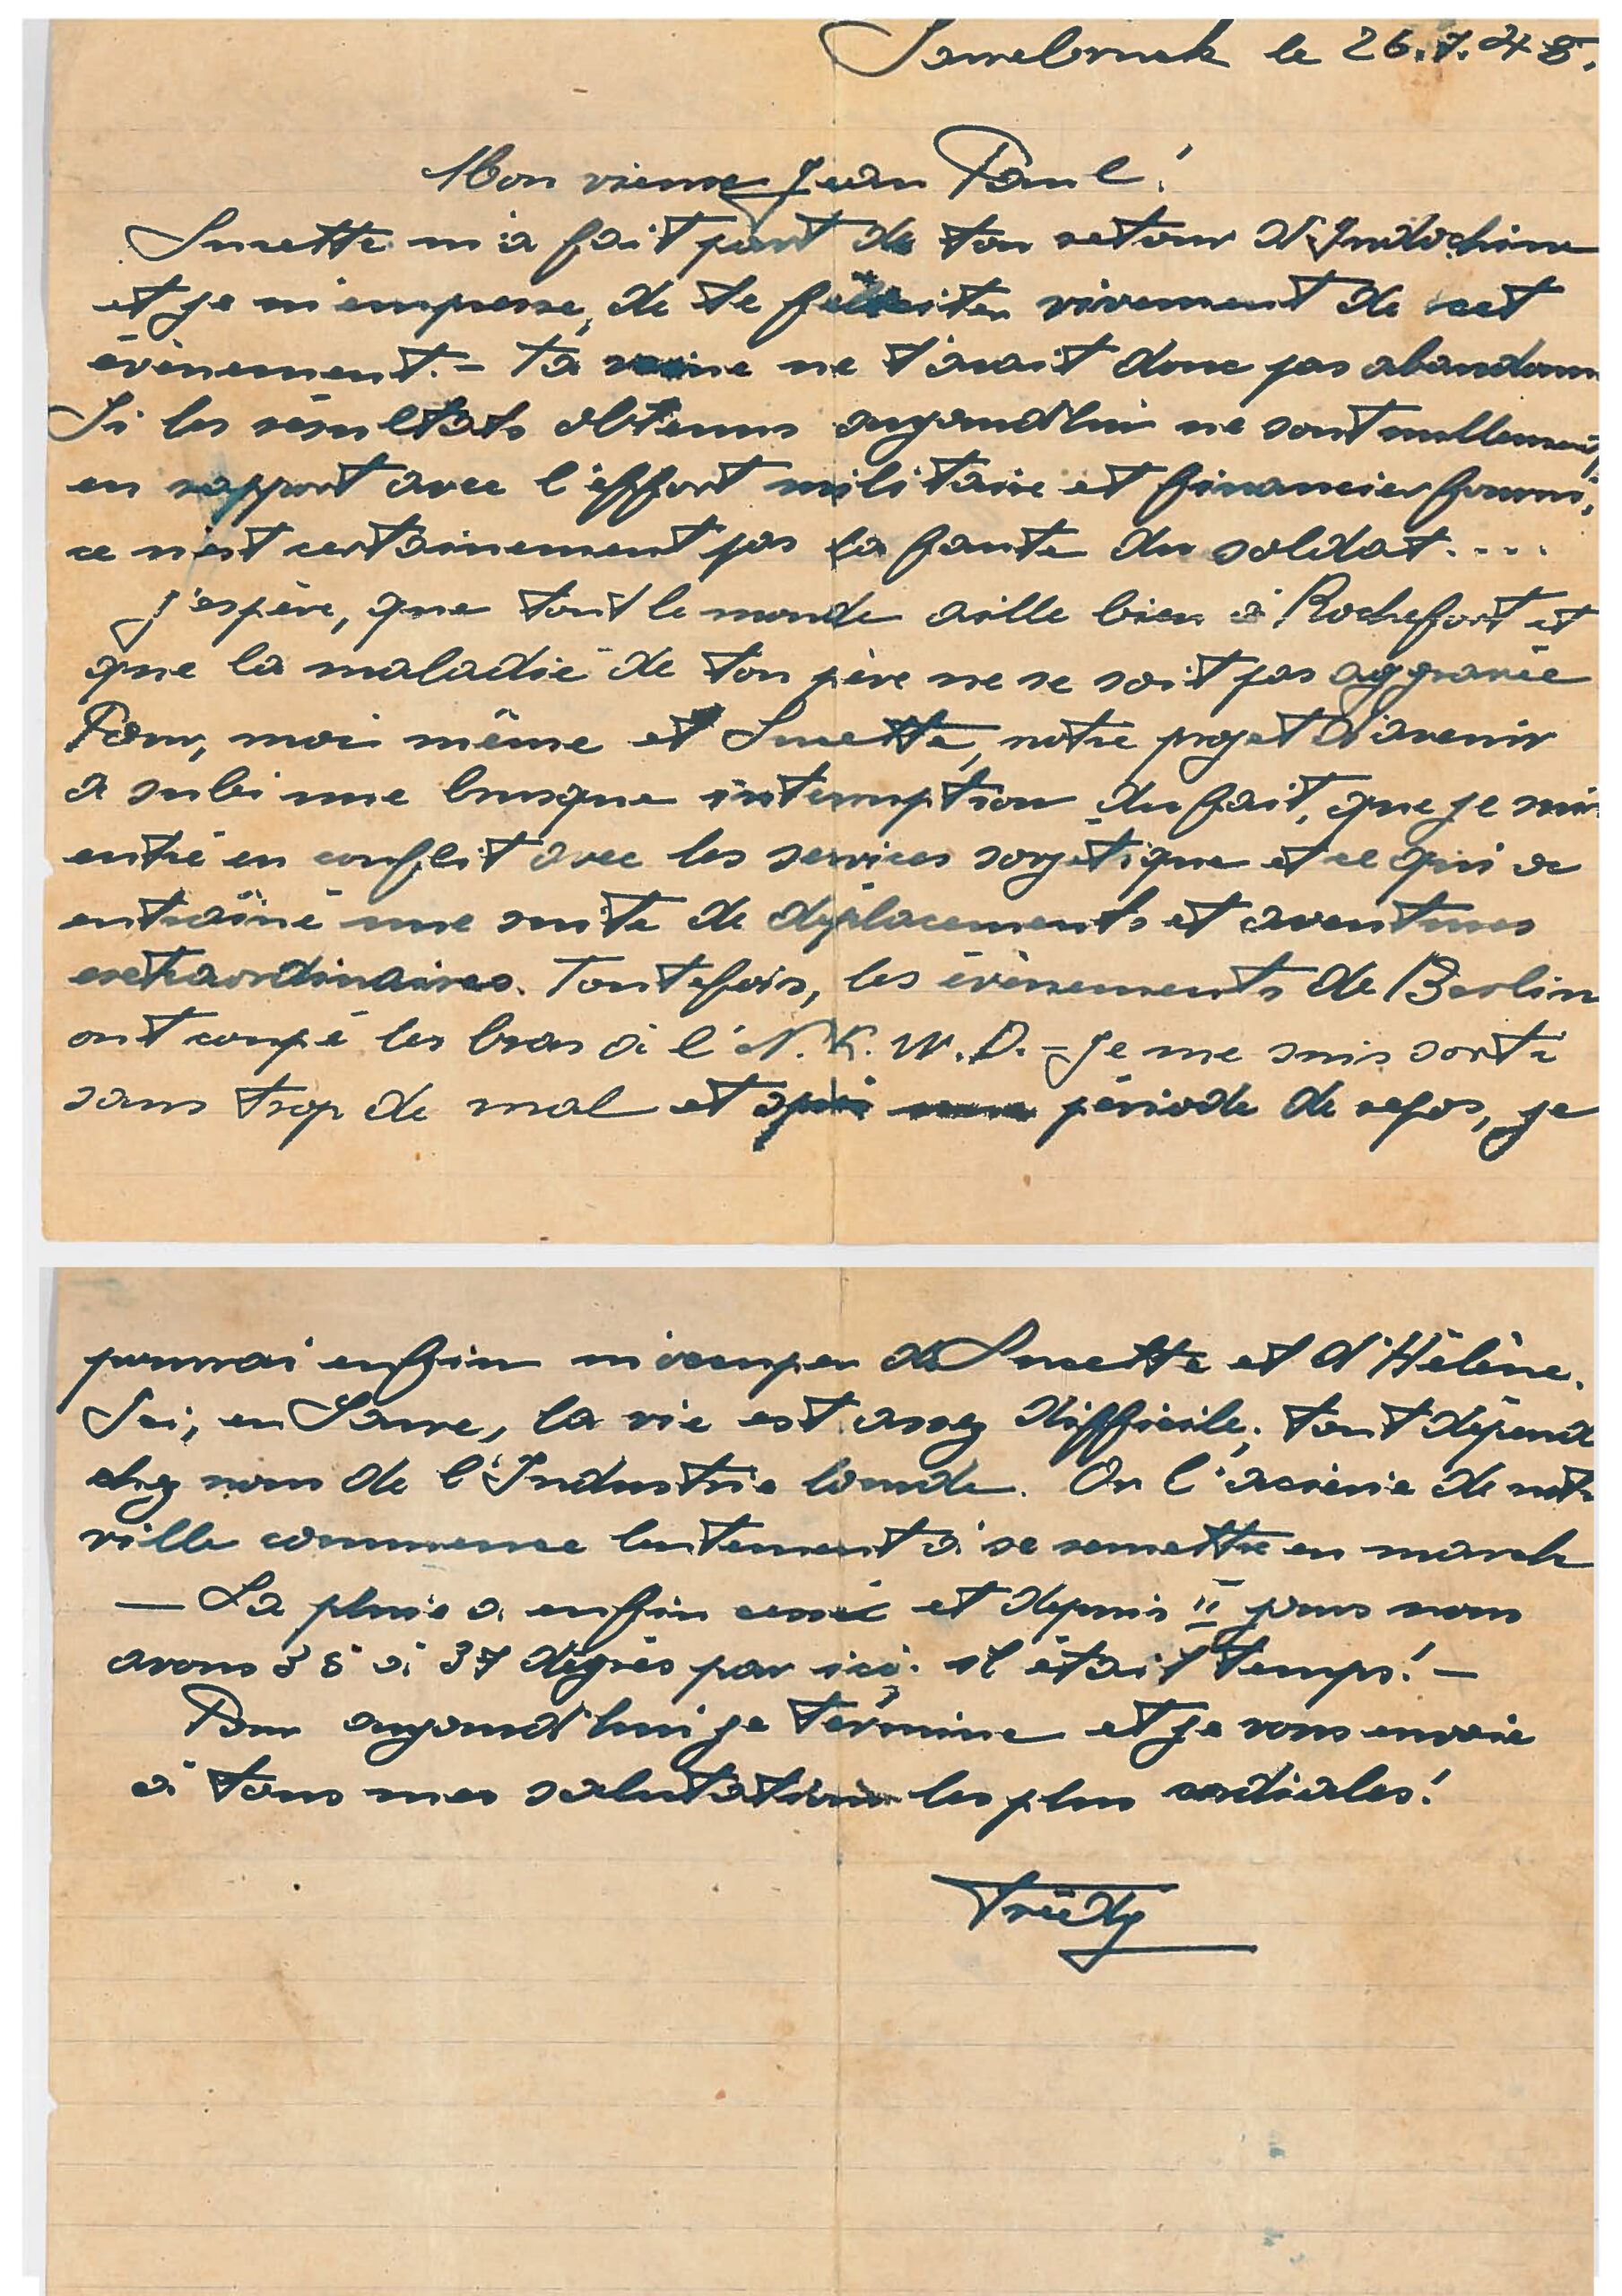 Sarrebruck le 26.7.48.
Mon vieux Jean Paul!
Sucette m'a fait part de ton retour d'Indochine
et je m'empresse, de te féliciter vivement de cet
évènement. - Ta veine ne t'avait donc pas abandonn
Si les résultats obtenus aujourd'hui ne sont nullement,
en rapport avec l'effort militaire et financier fourni,
ce n'est certainement pas la faute du soldat....
J'espère, que tout le monde aille bien à Rochefort et
que la maladie de ton père ne se soit pas aggravée
Pour, moi même et Sucette, notre projet d'avenir
a subi une brusque interruption du fait, que je suis
entré en conflit avec les services sovjétique et ce qui a
entraîné une suite de déplacements et aventures
extraordinaires. Toutefois, les évènements de Berlin
ont coupé les bras à l'N.K.W.D. - Je me suis sorti
sans trop de mal et après période de repos, je
pourrai enfin m'occuper de Sucette et d'Hélène.
Ici, en Sarre, la vie est assez difficile; tout dépend
chez nous de l'Industrie lourde. Or l'aciérie de notre
ville commence lentement à se remettre en march
— La pluie a enfin cessé et depuis II jours nous
avons 35 à 37 degrés par ici. il était temps! —
Pour aujourd'hui je termine et je vous envoie
à tous mes salutations les plus cordiales!
Frédy